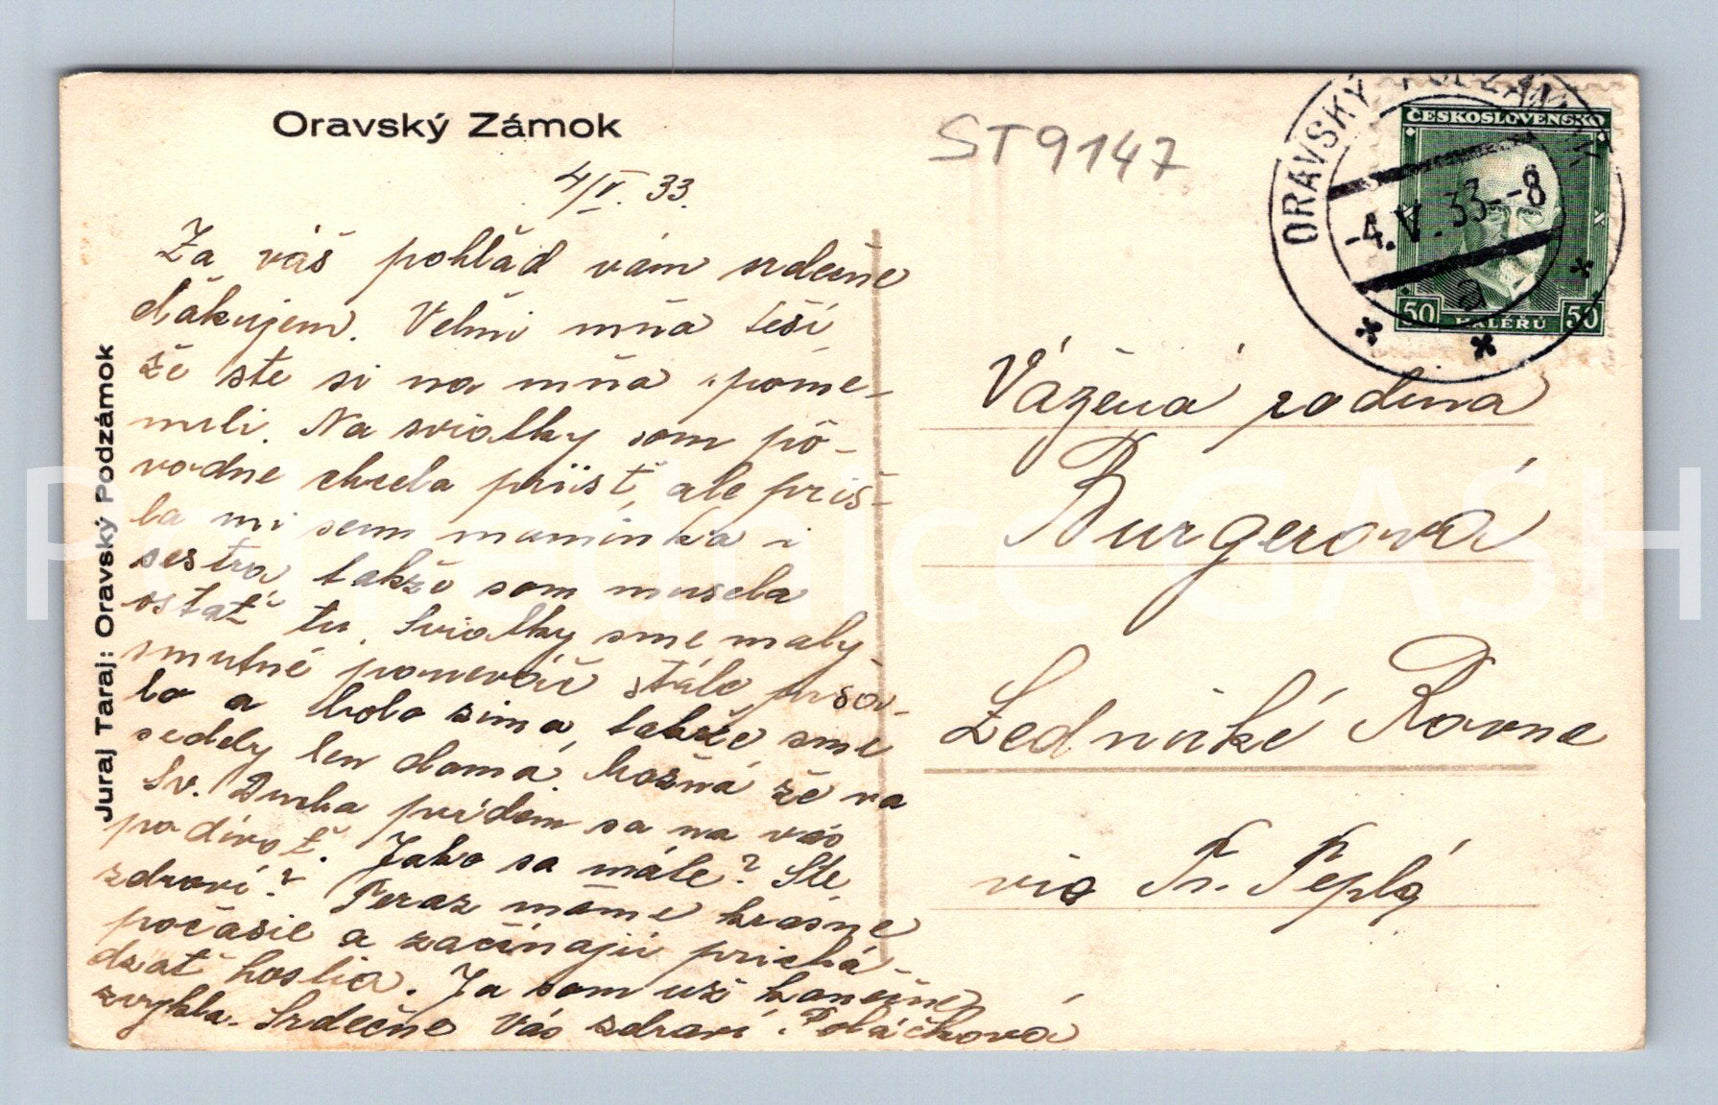 Oravský Zámok
ST9147
4/V. 33.
Za váš pohľad vám srdečne
ďakujem. Veľmi mňa teší,
že ste si na mňa pome-
nuli. Na sviatky som pô-
vodne chcela prijsť, ale priš-
la mi sem maminka i
sestra takže som musela
ostať tu. Sviatky sme maly
smutné poneváč stále prša-
lo a bolo zima, takže sme
sedely len doma. Možná že na
Sv. Ducha prídem sa na vás
podívať. Jako sa máte? Ste
zdraví? Teraz máme krásne
počasie a začínajú prichá-
dzať hostia. Ja som už konečne
zvykla. Srdečne Vás zdraví: Poláčková
Juraj Taraj: Oravský Podzámok
ORAVSKÝ PODZÁMOK
-4.V.33.-8
a
ČESKOSLOVENSKO
50 HALÉŘŮ 50
Vážená rodina
Burgerová
Lednické Rovne
via Tr. Teplá
Pohlednice GASH